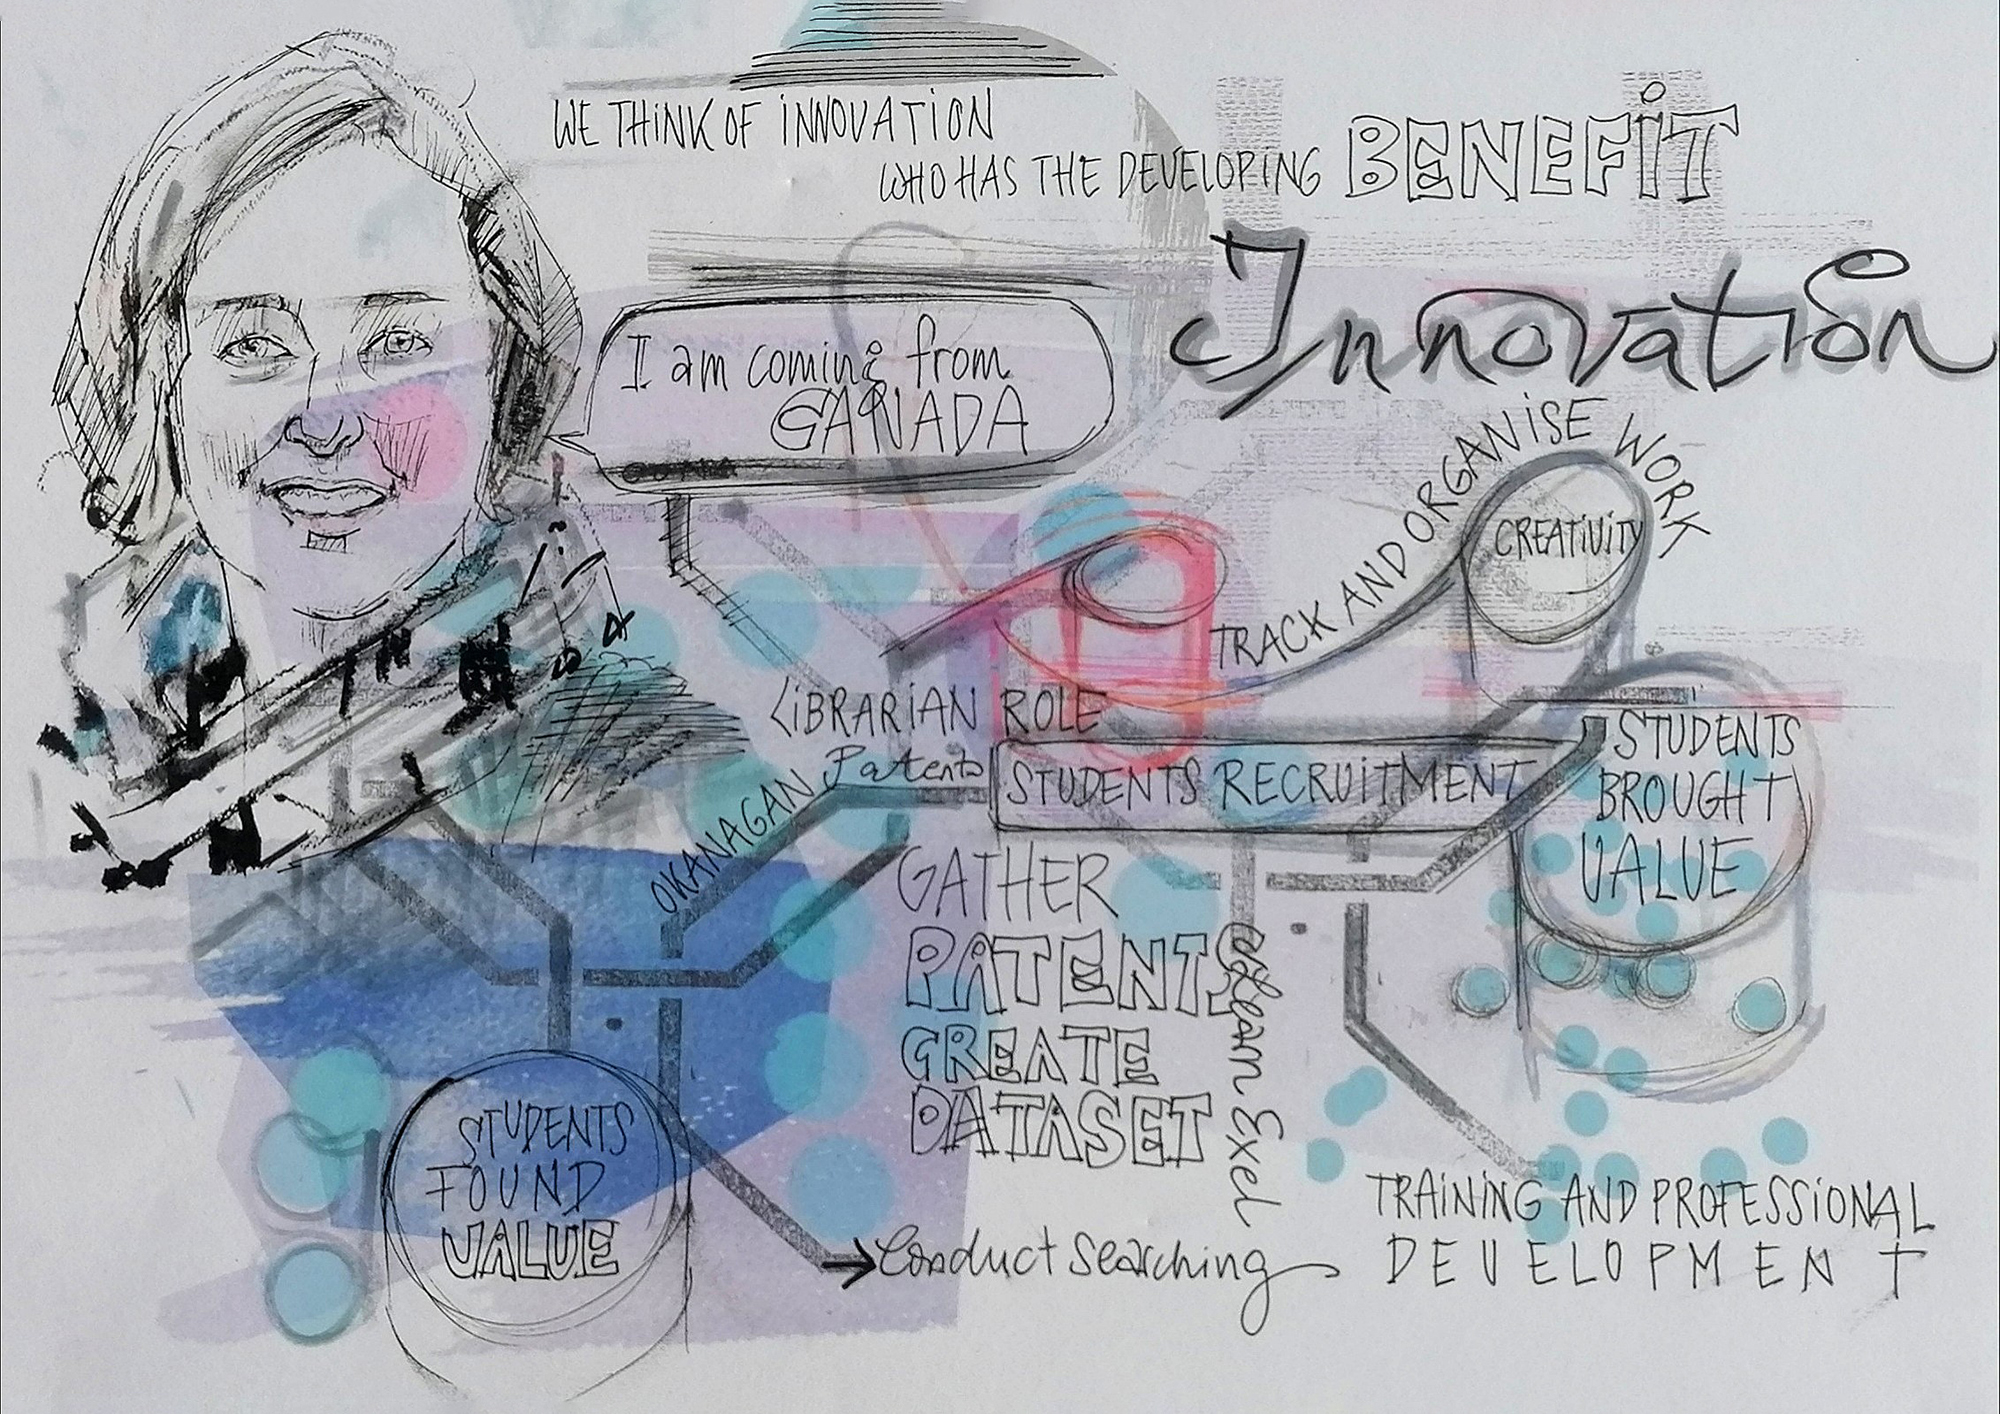 WE THINK OF INNOVATION
WHO HAS THE DEVELOPING BENEFIT
Innovation
I am coming from
CANADA
TRACK AND ORGANISE WORK
CREATIVITY
LIBRARIAN ROLE
OKANAGAN Patents
STUDENTS RECRUITMENT
STUDENTS
BROUGHT
VALUE
GATHER
PATENTS
CREATE
DATASET
Clean Exel
STUDENTS
FOUND
VALUE
Conduct Searching
TRAINING AND PROFESSIONAL
DEVELOPMENT